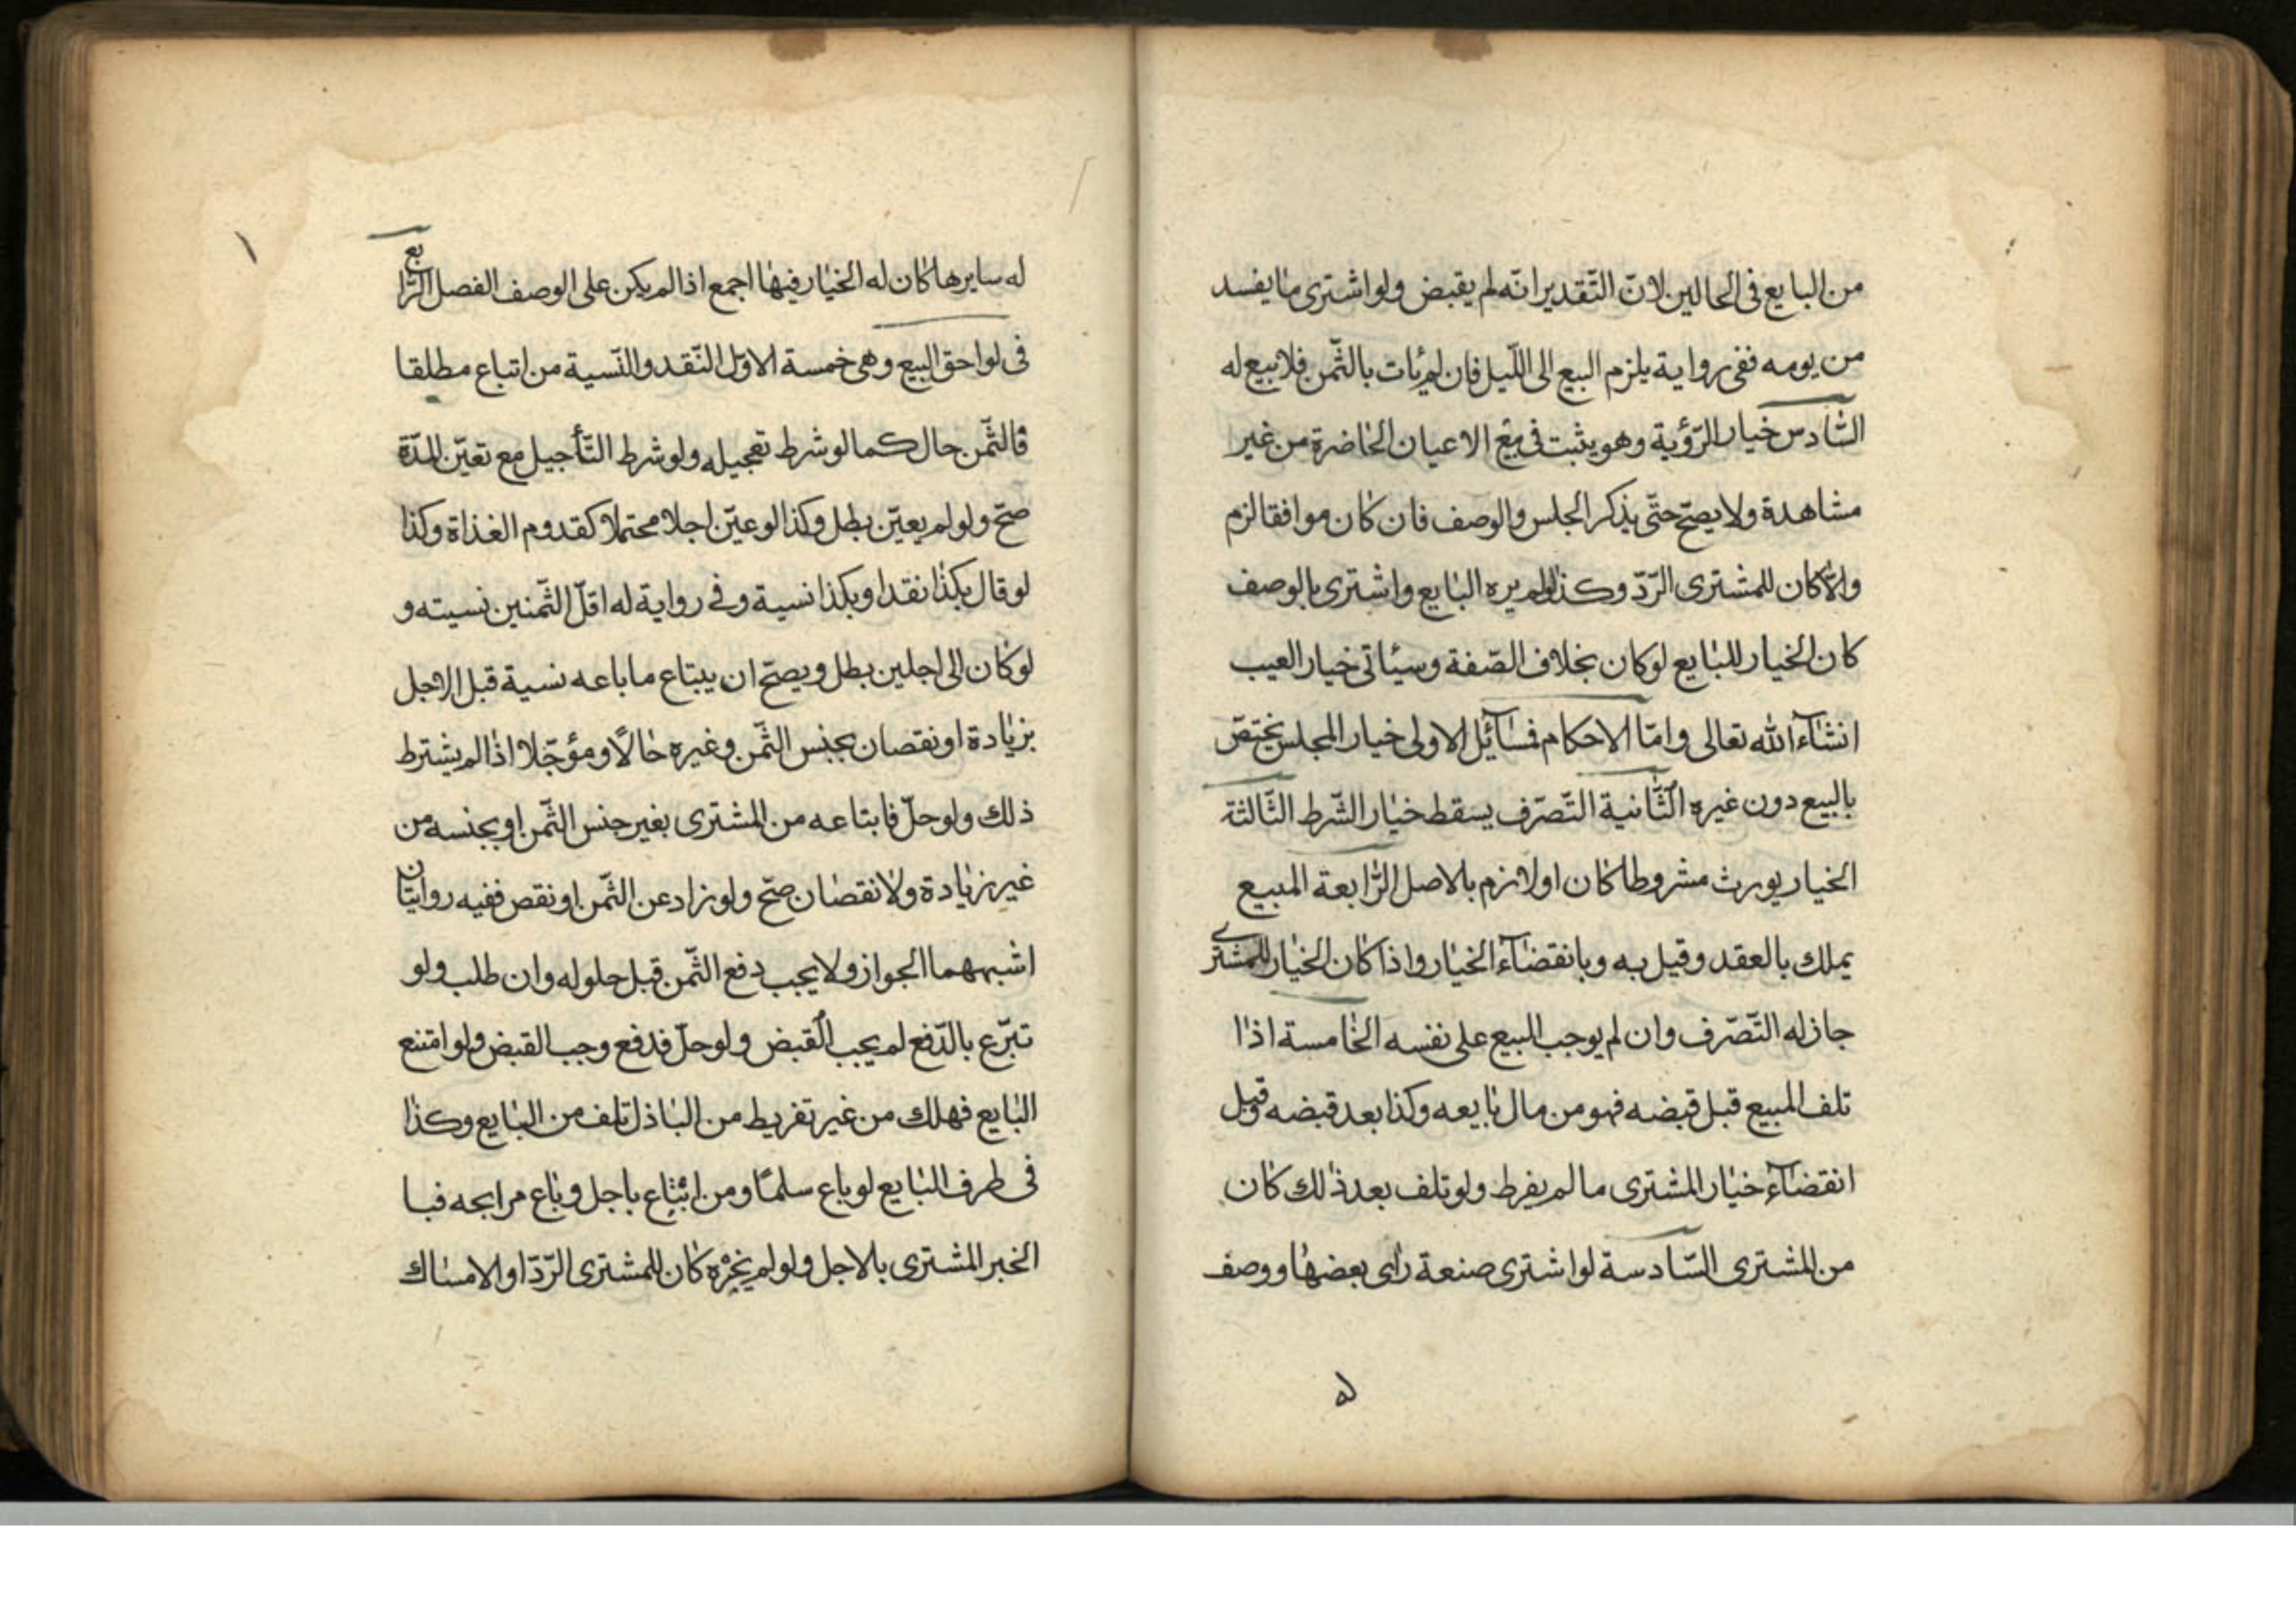 من البایع فی الحالین لانّ التّقدیر انّه لم یقبض ولو اشتری ما یفسد
من یومه ففی روایة یلزم البیع الی اللّیل فان لم یأت بالثّمن فلا بیع له
السّادس خیار الرّؤیة وهو یثبت فی بیع الاعیان الحاضرة من غیر
مشاهدة ولا یصحّ حتّی یذکر الجنس والوصف فان کان موافقا لزم
والّا کان للمشتری الرّدّ وکذا لو لم یره البایع واشتری بالوصف
کان الخیار للبایع لو کان بخلاف الصّفة وسیأتی خیار العیب
انشاء الله تعالی وامّا الاحکام فمسائل الاولی خیار المجلس یختصّ
بالبیع دون غیره الثّانیة التّصرّف یسقط خیار الشّرط الثّالثة
الخیار یورث مشروطا کان او لازم بالاصل الرّابعة المبیع
یملك بالعقد وقیل به وبانقضاء الخیار واذا کان الخیار للمشتری
جاز له التّصرّف وان لم یوجب البیع علی نفسه الخامسة اذا
تلف المبیع قبل قبضه فهو من مال بایعه وکذا بعد قبضه وقبل
انقضاء خیار المشتری ما لم یفرط ولو تلف بعد ذلك کان
من المشتری السّادسة لو اشتری صنعة رای بعضها ووصف
ﻪ
١
له سایرها کان له الخیار فیها اجمع اذا لم یکن علی الوصف الفصل الرّابع
فی لواحق البیع وهی خمسة الاوّل النّقد والنّسیة من ابتاع مطلقا
فالثّمن حال کما لو شرط تعجیله ولو شرط التّأجیل مع تعیّن المدّة
صحّ ولو لم یعیّن بطل وکذا لو عیّن اجلا محتملا کقدوم الغذاة وکذا
لو قال بکذا نقدا وبکذا نسیة وفی روایة له اقلّ الثّمنین نسیته و
لو کان الی اجلین بطل ویصحّ ان یبتاع ما باعه نسیة قبل الاجل
بزیادة او نقصان بجنس الثّمن وغیره حالًا ومؤجّلا اذا لم یشترط
ذلك ولو حلّ فابتاعه من المشتری بغیر جنس الثّمن او بجنسه من
غیر زیادة ولا نقصان صحّ ولو زاد عن الثّمن او نقص ففیه روایتان
اشبههما الجواز ولا یجب دفع الثّمن قبل حلوله وان طلب ولو
تبرّع بالدّفع لم یجب القبض ولو حلّ فدفع وجب القبض ولو امتنع
البایع فهلك من غیر تفریط من الباذل تلف من البایع وکذا
فی طرف البایع لو باع سلمًا ومن ابتاع باجل وباع مرابحه فبا
الخبر المشتری بالاجل ولو لم یخبره کان للمشتری الرّدّ او الامساك